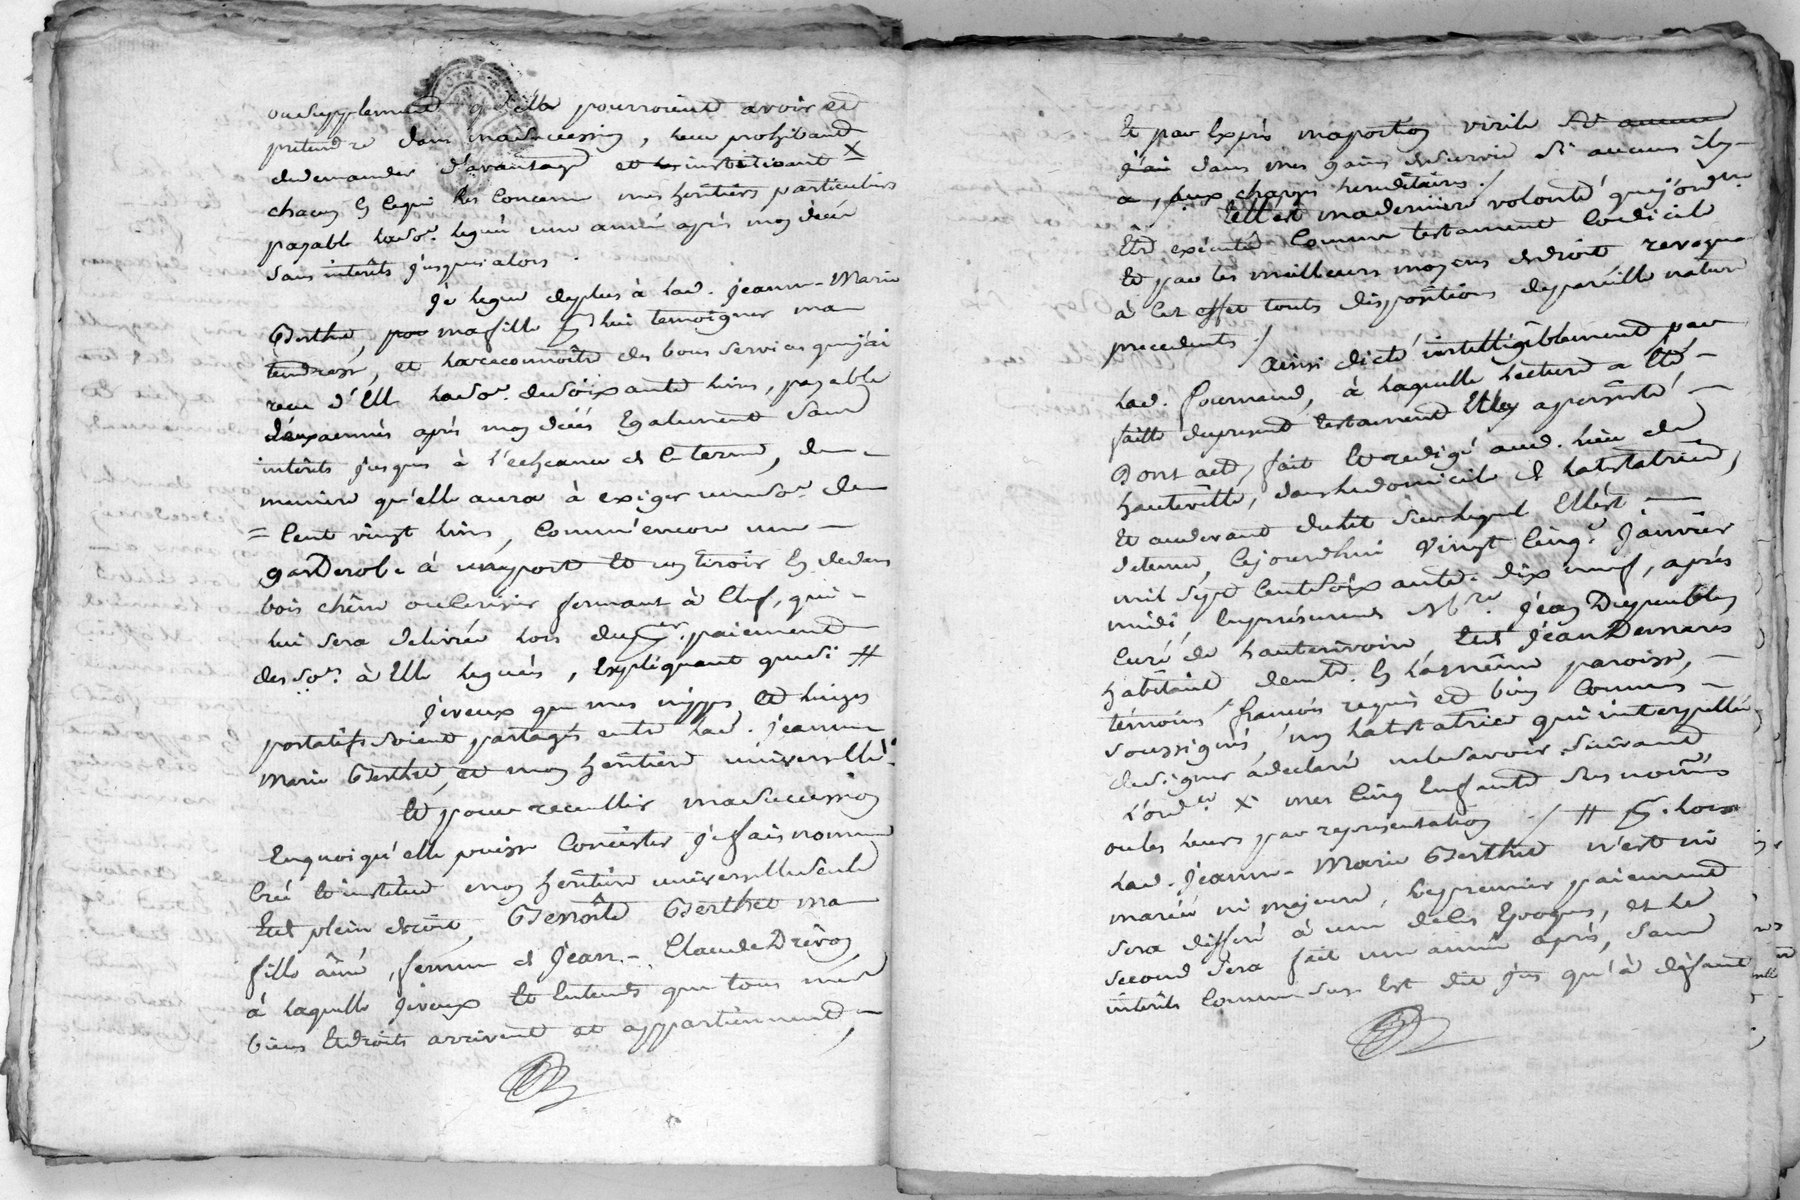 ou supplement qu'elles pourroient avoir et
pretendre dans ma succession, leur prohibant
de demander d'avantage et les instituant X
chacun en ce qui les concerne mes heritiers particuliers
payable lad. so.e leguée une année après mon décès
sans interêts jusques alors.
Je legue de plus à lad. Jeanne-Marie
Berthet, ma fille pour lui temoigner ma
tendresse, et la reconnoître des bons services que j'ai
reçu d'Elle la so.e de soixante livres, payable
deux années après mon décès Egalement sans
interêts jusques à l'echeance de ce terme, de
maniere qu'elle aura à exiger une so.e de
= Cent vingt livres, Comm'encore une
garderobe à une porte et un tiroir en dedans
bois chêne ou Cerisier fermant à Clef, qui
lui sera delivrée lors du p.er paiement
des so.es à Elle leguées, Expliquant que si #
Je veux que mes nippes et linges
portatifs soient partagés entre lad. Jeanne
Marie Berthet, et mon heritière universelle.
Et pour recueillir ma succession
En quoi qu'elle puisse Concister je fais nomme
Crée et institue mon heritière universelle seule
Et de plein droit, Benoîte Berthet ma
fille aînée, femme de Jean-Claude Drevon
à laquelle je veux et Entends que tous mes
biens et droits arrivent et appartiennent,
Et par Exprès ma portion virile
j'ai dans mes gains de survie si aucuns il y
a, aux charges hereditaires./
Telle est ma derniere volonté que j'ord.ne
Etre exécutée Comme testament Codicile
Et par les meilleurs moyens de droit, revoque
à Cet effet toutes dispositions de pareille nature
precedentes./
Ainsi dicté intelligiblement par
lad. fournand, à laquelle lecture a Eté
faitte du present testament Elle y a persisté
Dont acte, fait et redigé aud. lieu de
hauteville, dans le domicile de la testatrice,
Et au devant du lit sur lequel Elle est
detenue, Cejourdhui vingt Cinq.e Janvier
mil Sept Cent soixante dix neuf, après
midi En présence de M.re Jean Dupeubles
Curé de hauterivoire, Et de Jean Demares
habitant dem.t En la même paroisse,
temoins françois requis et bien Connus
soussignés, non la testatrice qui interpellée
de signer a declaré ne le savoir suivant
l'ord.ce X mes Cinq Enfants sus nommés
ou les leurs par representation ./ # lors
lad. Jeanne-Marie Berthet n'est ni
mariée ni majeure, le premier paiement
sera differé à une de Ces Epoques, et le
second sera fait une année après, sans
interêts Comme sus Est dit jus qu'à defaut